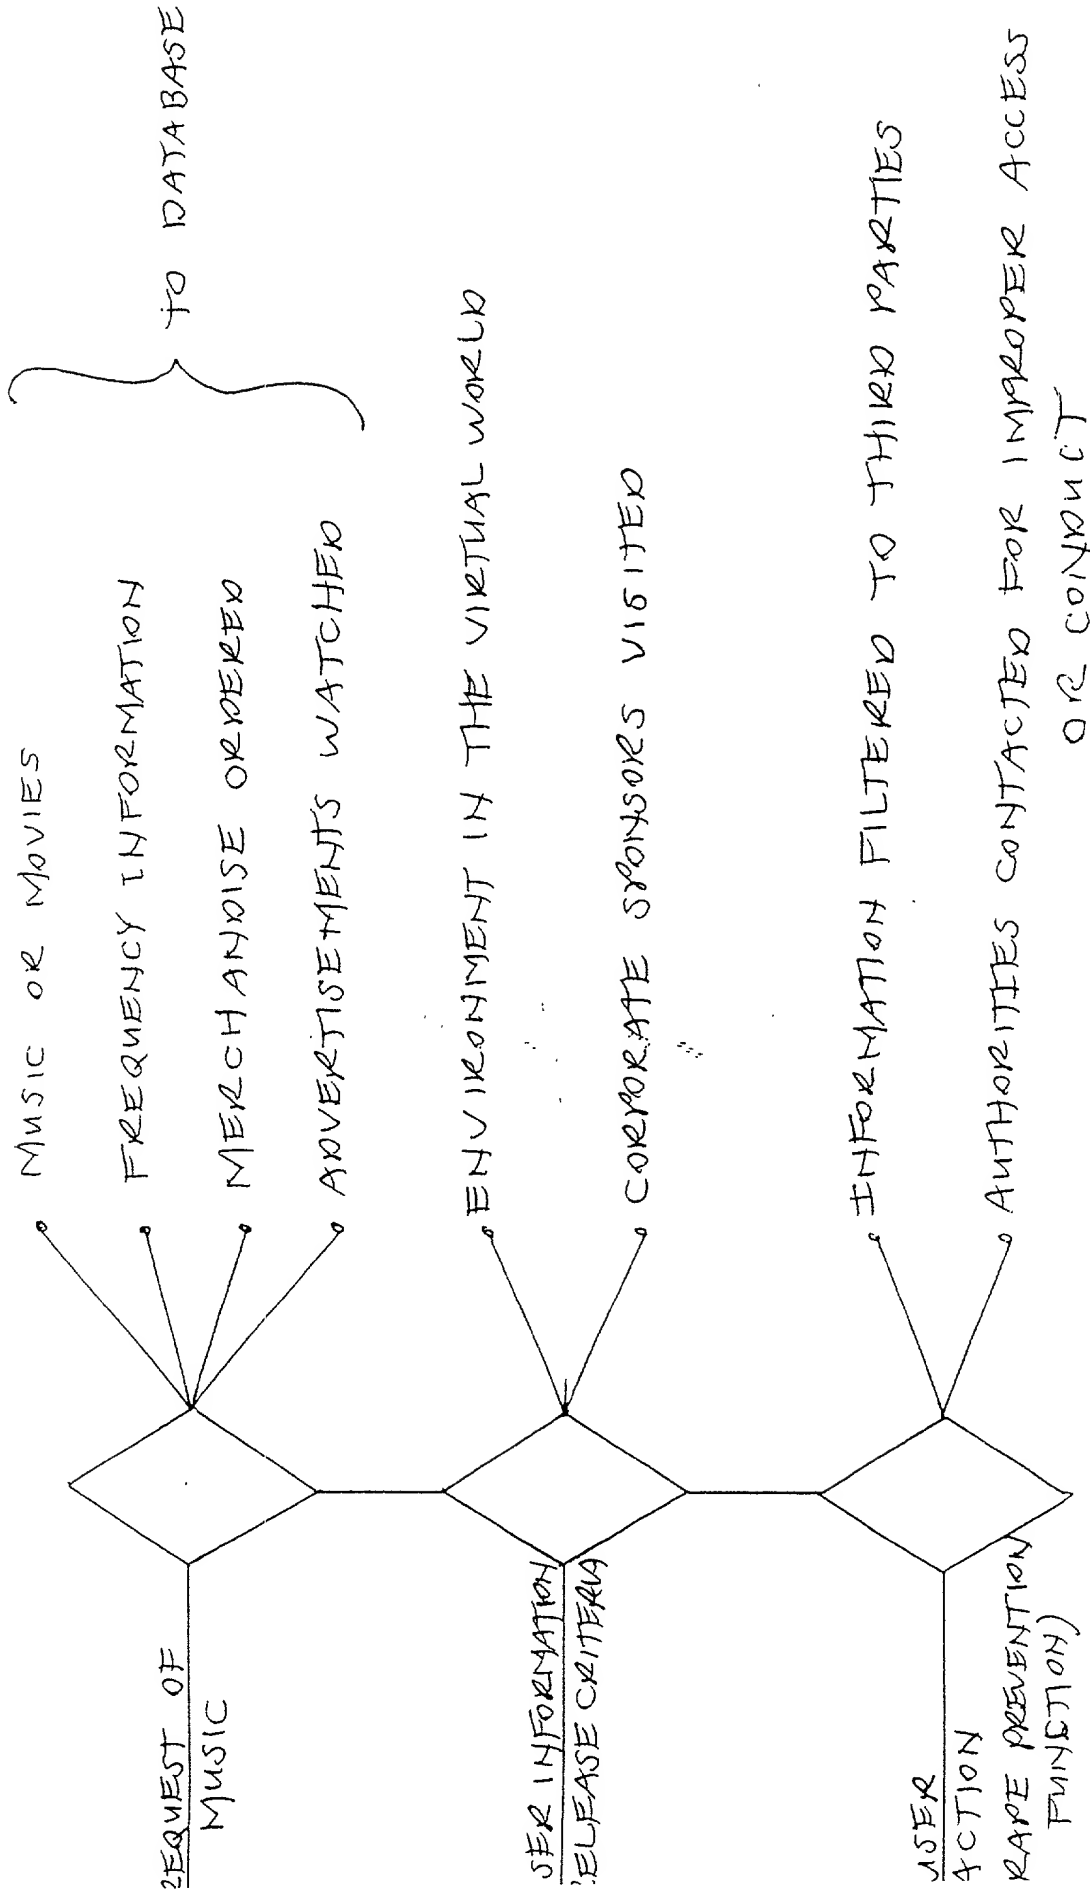 REQUEST OF
MUSIC
MUSIC OR MOVIES
FREQUENCY INFORMATION
MERCHANDISE ORDERED
ADVERTISEMENTS WATCHED
TO DATABASE
SER INFORMATION
RELEASE CRITERIA
ENVIRONMENT IN THE VIRTUAL WORLD
CORPORATE SPONSORS VISITED
USER
ACTION
RAPE PREVENTION
FUNCTION)
INFORMATION FILTERED TO THIRD PARTIES
AUTHORITIES CONTACTED FOR IMPROPER ACCESS
OR CONDUCT